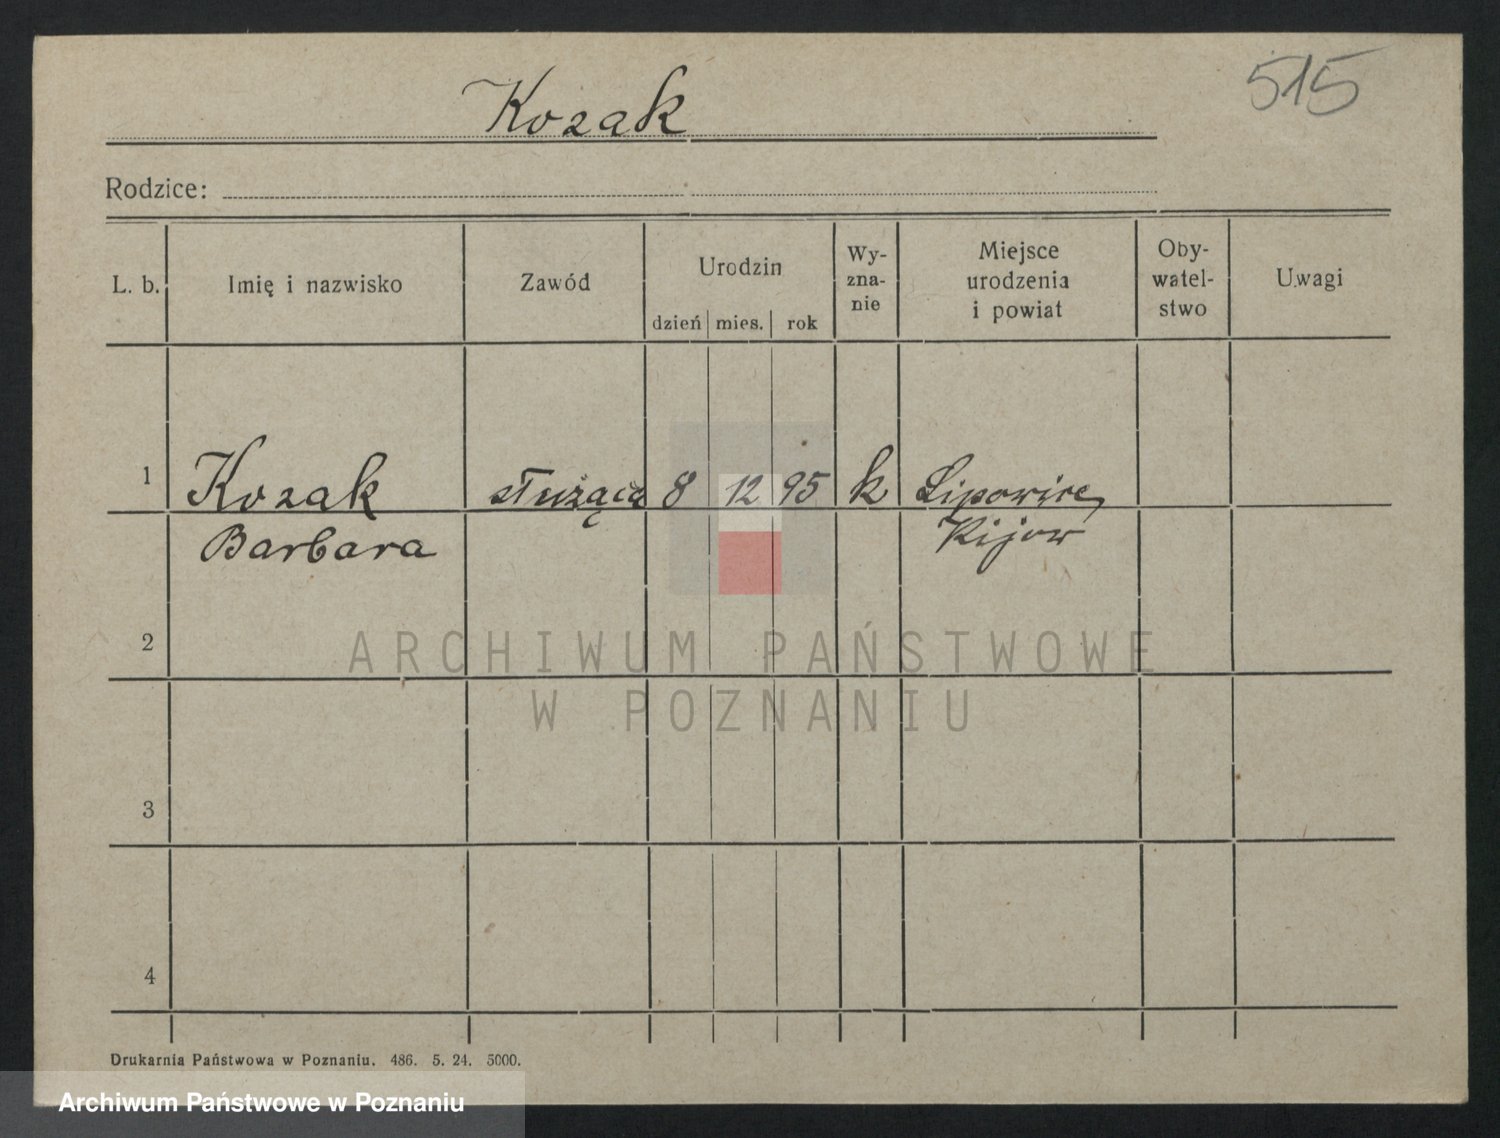 Kozak
515
Rodzice:
L. b.
Imię i nazwisko
Zawód
Urodzin
dzień mies. rok
Wy-
zna-
nie
Miejsce
urodzenia
i powiat
Oby-
watel-
stwo
Uwagi
1 Kozak służąca 8 12 95 k Lipowice,
Barbara Kijow
2
ARCHIWUM PAŃSTWOWE
W POZNANIU
3
4
Drukarnia Państwowa w Poznaniu. 486. 5. 24. 5000.
Archiwum Państwowe w Poznaniu